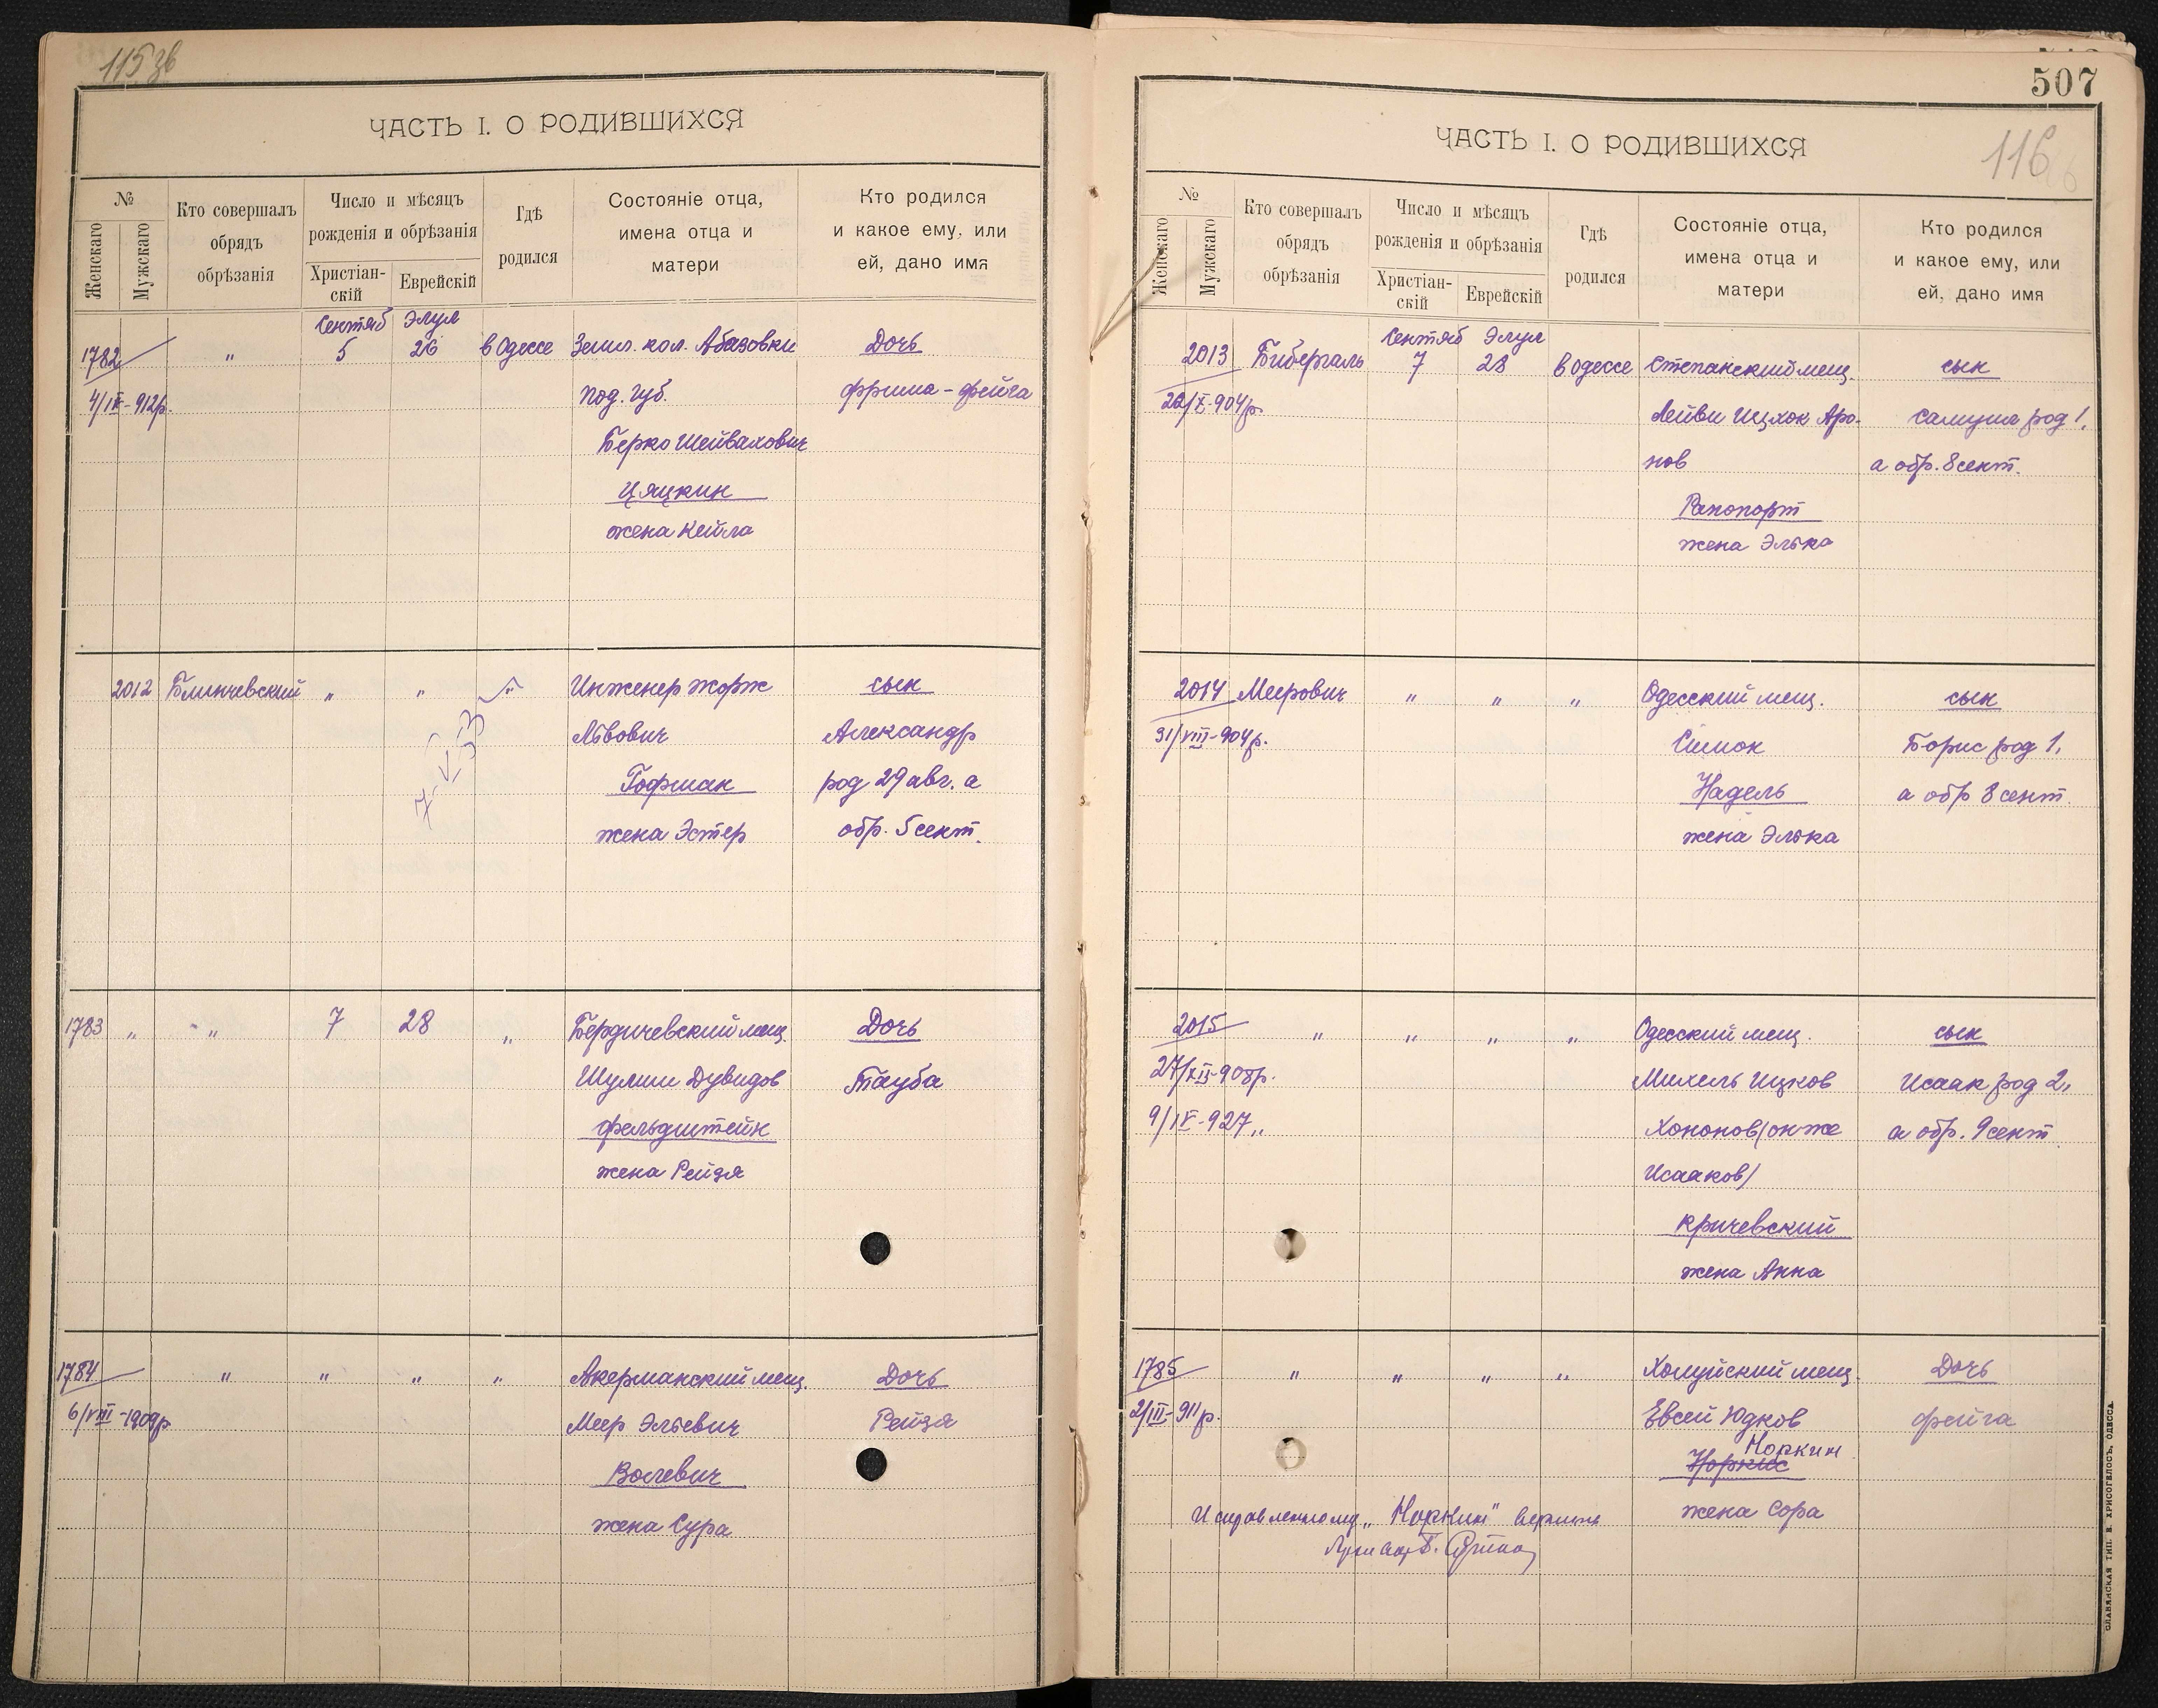 115 зв
ЧАСТЬ I. О РОДИВШИХСЯ
№
Женскаго
Мужскаго
Кто совершалъ
обрядъ
обрѣзанія
Число и мѣсяцъ
рожденія и обрѣзанія
Христіан-
скій
Еврейскій
Гдѣ
родился
Состояніе отца,
имена отца и
матери
Кто родился
и какое ему, или
ей, дано имя
Сентяб Элул
1782 " 5 26 в Одессе Земл. кол. Абазовки Дочь
4/IX-912р. под. губ. Фрима-Фейга
Берко Шейвахович
Цяцкин
жена Кейла
2012 Блинчевский " " " Инженер Жорж сын
Львович Александр
Гофман род 29 авг. а
жена Эстер обр. 5 сент.
7-V-33
1783 " " 7 28 " Бердичевский мещ. Дочь
Шулим Дувидов Тауба
Фельдштейн
жена Рейзя
1784 " " " " Акерманский мещ. Дочь
6/VIII-1909р Меер Эльевич Рейзя
Волевич
жена Сура
507
116
ЧАСТЬ I. О РОДИВШИХСЯ
№
Женскаго
Мужскаго
Кто совершалъ
обрядъ
обрѣзанія
Число и мѣсяцъ
рожденія и обрѣзанія
Христіан-
скій
Еврейскій
Гдѣ
родился
Состояніе отца,
имена отца и
матери
Кто родился
и какое ему, или
ей, дано имя
Сентяб Элул
2013 Бибергаль 7 28 в Одессе Степанский мещ. сын
22/X-904р. Лейви Ицхок Аро- Самуил род 1,
нов а обр. 8 сент.
Рапопорт
жена Элька
2014 Меерович " " " Одесский мещ. сын
31/VIII-904р. Симон Борис род 1,
Надель а обр 8 сент.
жена Элька
2015 " " " " Одесский мещ. сын
27/XII-908р. Михель Ицков Исаак род 2,
9/IV-927 " Хононов/он же а обр. 9 сент.
Исааков/
Кричевский
жена Анна
1785 " " " " Холуйский мещ. Дочь
2/III-911р. Евсей Юдков Фейга
Норкин
Норкис
жена Сора
Исправленному „Норкин" верить
СЛАВЯНСКАЯ ТИП. Н. ХРИСОГЕЛОСЪ, ОДЕССА.